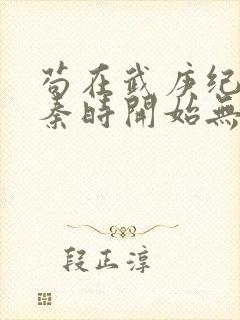 苟在武庚纪
秦时開始無
段正淳